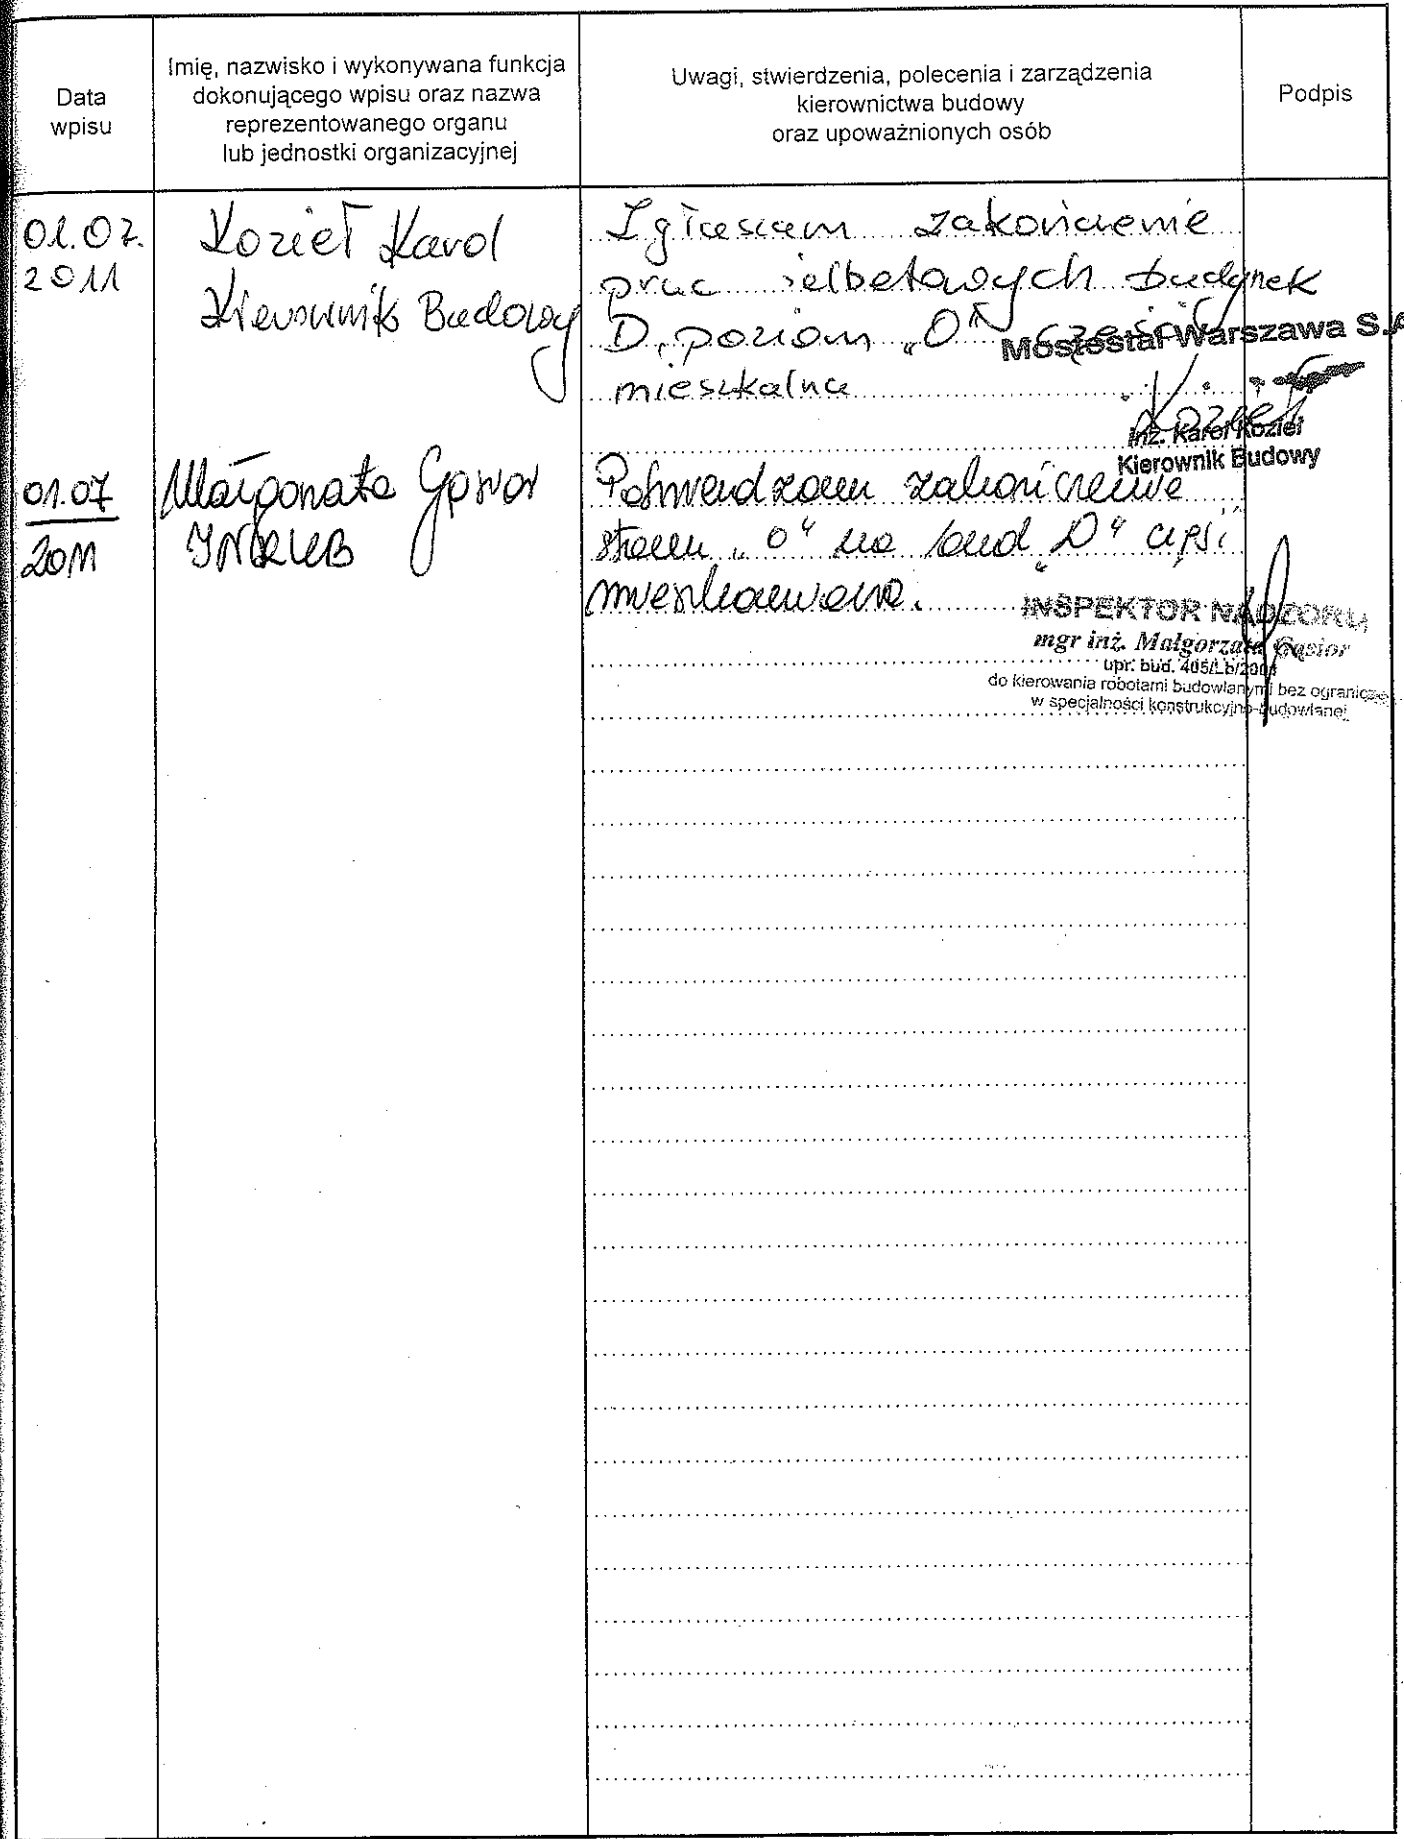 Data
wpisu
Imię, nazwisko i wykonywana funkcja
dokonującego wpisu oraz nazwa
reprezentowanego organu
lub jednostki organizacyjnej
Uwagi, stwierdzenia, polecenia i zarządzenia
kierownictwa budowy
oraz upoważnionych osób
Podpis
01.07.
2011
Kozieł Karol
Kierownik Budowy
Zgłaszam zakończenie
prac żelbetowych budynek
D, poziom „0" część
mieszkalna
Mostostal Warszawa S.A
Kozieł
inż. Karol Kozieł
Kierownik Budowy
01.07
2011
Małgorzata Gąsior
INSP
Potwierdzam zakończenie
stanu „0" na bud „D" część
mieszkaniowa.
INSPEKTOR NADZORU
mgr inż. Małgorzata Gąsior
upr. bud. 405/Lb/2001
do kierowania robotami budowlanymi bez ogranicze
w specjalności konstrukcyjno-budowlanej